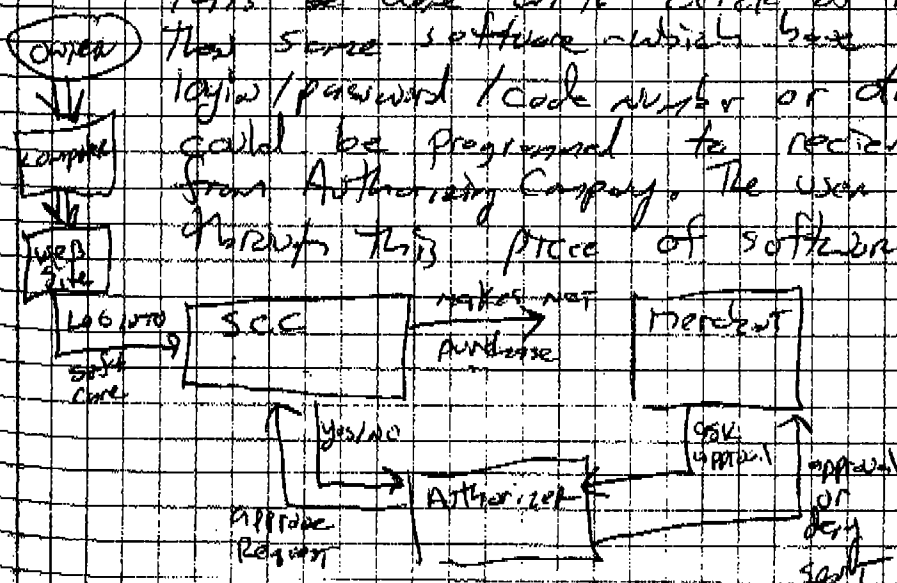 owner
these same software which have
login/password/code number or
could be programmed to recieve
from Authorizing Company. The user
through this piece of software
Computer
WEB
Site
LOG INTO
Safe
S.C.C
makes NET
purchase
Merchant
yes/NO
ask
approval
Authorizer
approve
Request
approval
or
deny
sent